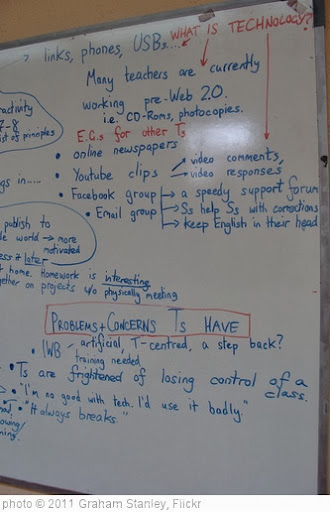 WHAT IS TECHNOLOGY?
? links, phones, USBs....
Many teachers are currently
working pre-Web 2.0.
i.e. CD-Roms, photocopies.
ractivity
7-8
ist of principles
E.G.s for other Ts
• online newspapers
• Youtube clips
video comments,
video responses
gs in.....
• Facebook group → a speedy support forum
• Email group → Ss help Ss with corrections
→ keep English in their head
publish to
le world → more
motivated
ess it later
t home. Homework is interesting
gether on projects w/o physically meeting
PROBLEMS+CONCERNS Ts HAVE
• IWB - artificial, T-centred, a step back?
training needed
• Ts are frightened of losing control of a
class.
• "I'm no good with tech. I'd use it badly."
• T. • "It always breaks."
owing/
ning.
photo © 2011 Graham Stanley, Flickr